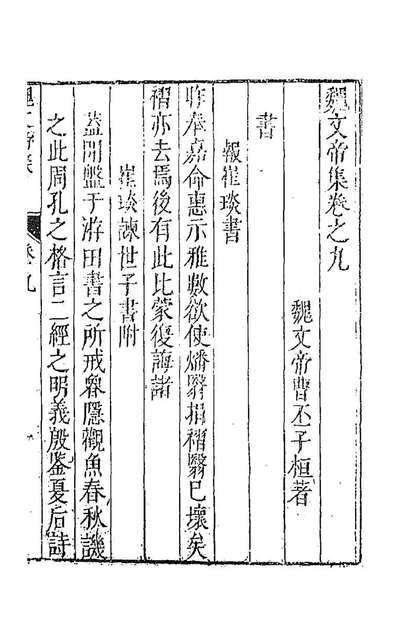 魏文帝集卷之九
魏文帝曹丕子桓著
書
報崔琰書
昨奉嘉命惠示雅數欲使燔翳捐褶翳已壞矣
褶亦去焉後有此比蒙復誨諸
崔琰諫世子書附
蓋聞盤于游田書之所戒魯隱觀魚春秋譏
之此周孔之格言二經之明義殷鑒夏后詩
卷九